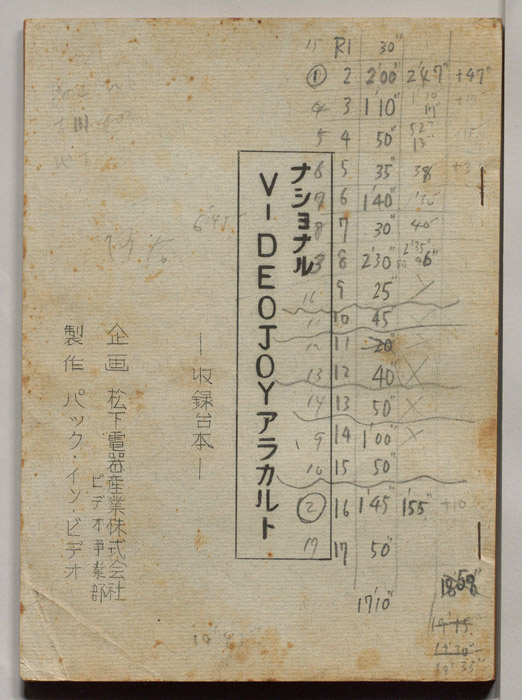 ナショナル
VIDEOJOYアラカルト
―収録台本―
企画 松下電器産業株式会社
ビデオ事業部
製作 パック・イン・ビデオ
15 R1 30"
① 2 2'00" 2'47" +47"
4 3 1'10"
5 4 50"
6 5 35" 38
7 6 1'40"
8 7 30" 40
3 8 2'30" 2'35"
9 25"
10 45
11 20"
13 12 40"
14 13 50"
9 14 1'00"
16 15 50"
② 16 1'45" 1'55" +10
17 17 50"
17'10"
18'58"
19'15"
19'30"
19'33"